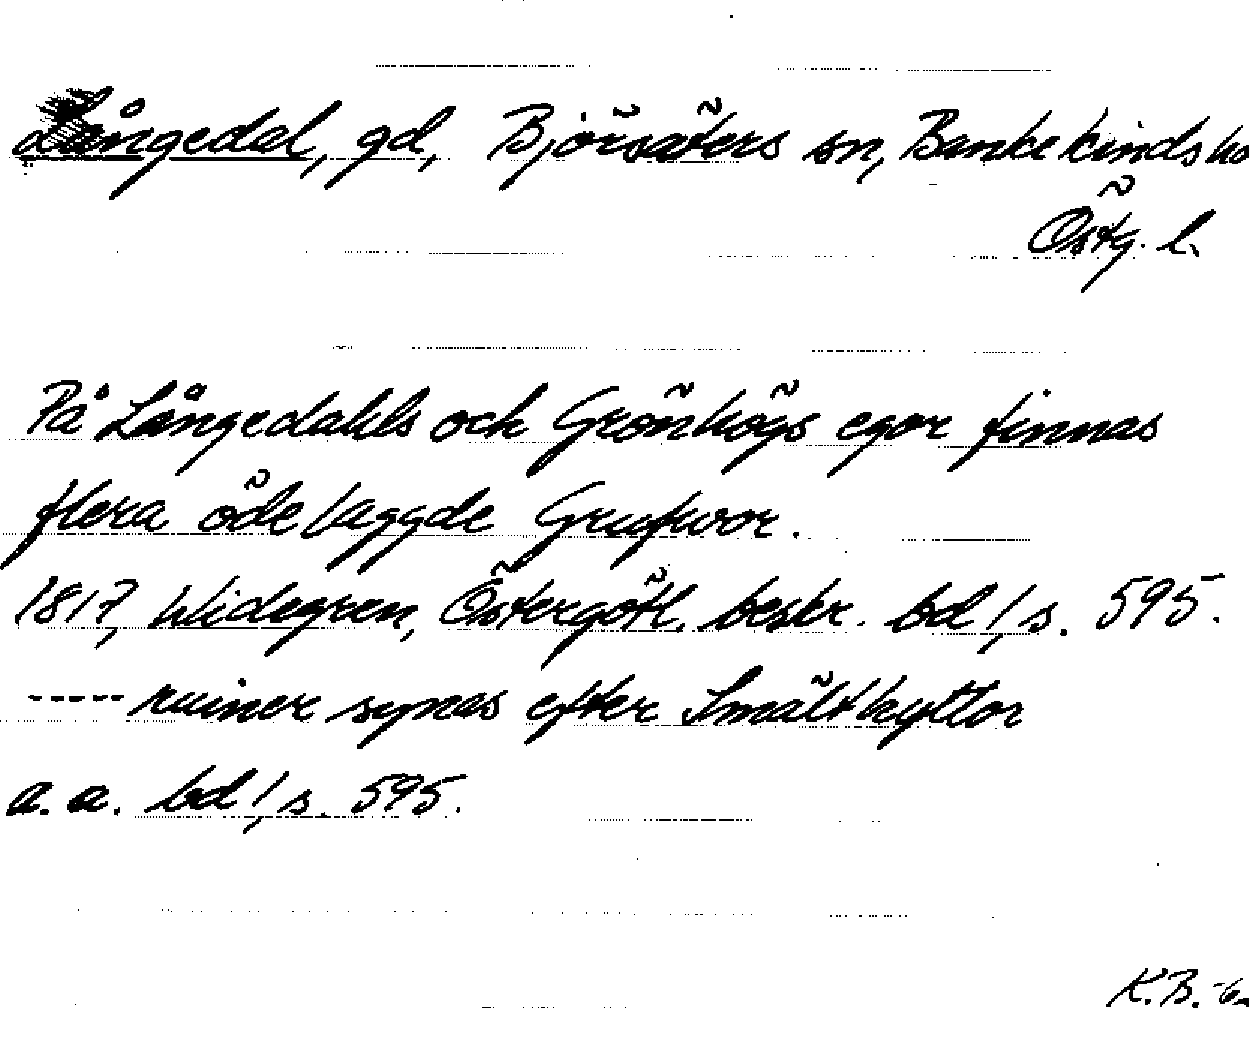 Långedal, gd, Björsäters sn, Bankekinds
Östg. l.
På Långedahls och Grönhögs egor finnas
flera ödelaggde Grufwor.
1817, Widegren, Östergötl. beskr. bd 1, s. 595.
----- ruiner synas efter Smälthyttor
a. a. bd 1, s. 595.
K.B.